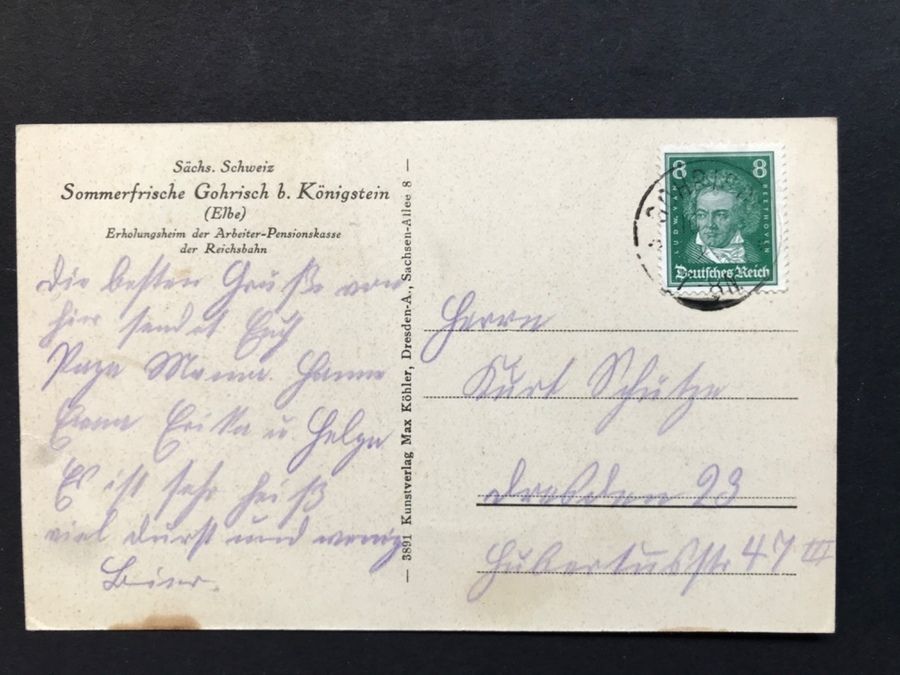 Sächs. Schweiz
Sommerfrische Gohrisch b. Königstein
(Elbe)
Erholungsheim der Arbeiter-Pensionskasse
der Reichsbahn
Die besten Grüße von
hier sendet Euch
Papa Mama. Hanne
Erna Erika u Helga
Es ist sehr heiß
viel Durst und wenig
Bier
— 3891 Kunstverlag Max Köhler, Dresden-A., Sachsen-Allee 8 —
8 8
LUDW. VAN BEETHOVEN
Deutsches Reich
Herrn
Kurt Schütze
Dresden 23
Hubertusstr 47 III